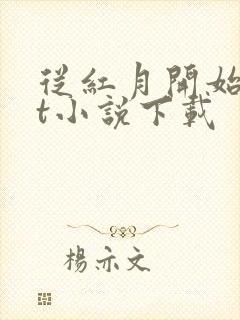 從紅月開始
t小說下載
楊亦文